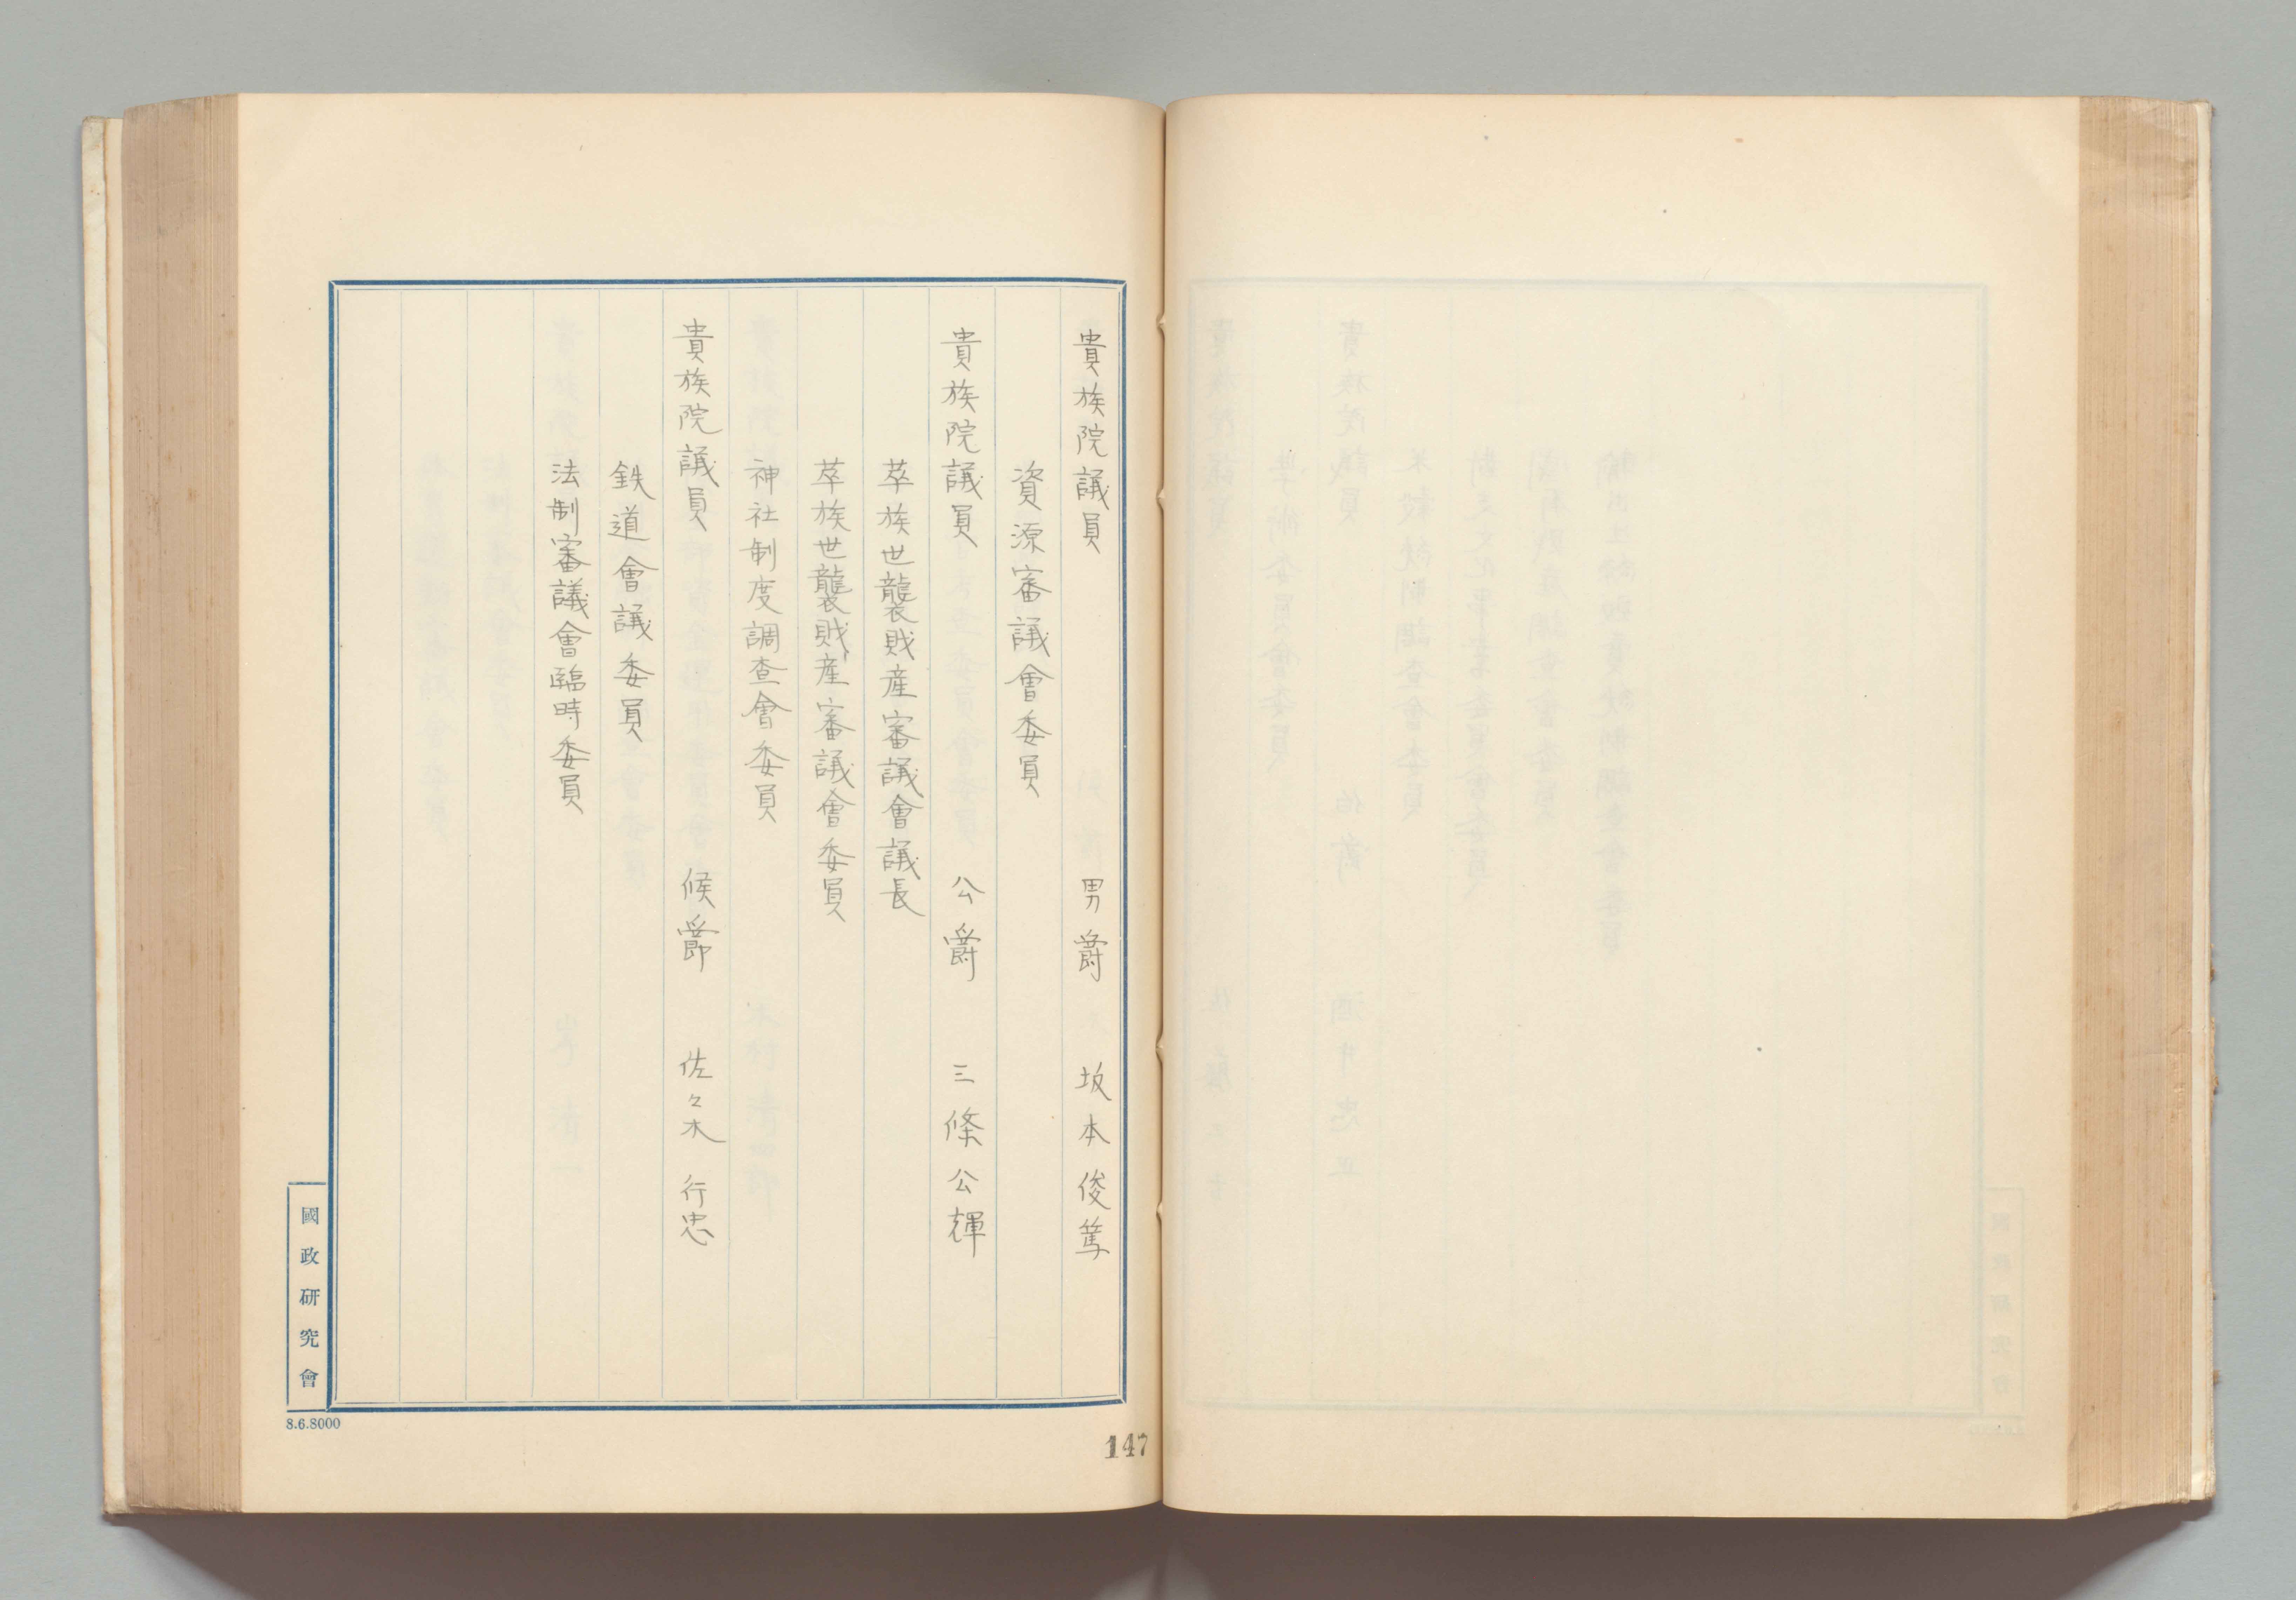 貴族院議員　男爵　坂本俊篤
資源審議會委員
貴族院議員　公爵　三條公輝
華族世襲財産審議會議長
華族世襲財産審議會委員
神社制度調査會委員
貴族院議員　候爵　佐々木行忠
鉄道會議委員
法制審議會臨時委員
國政研究會
8.6.8000
147